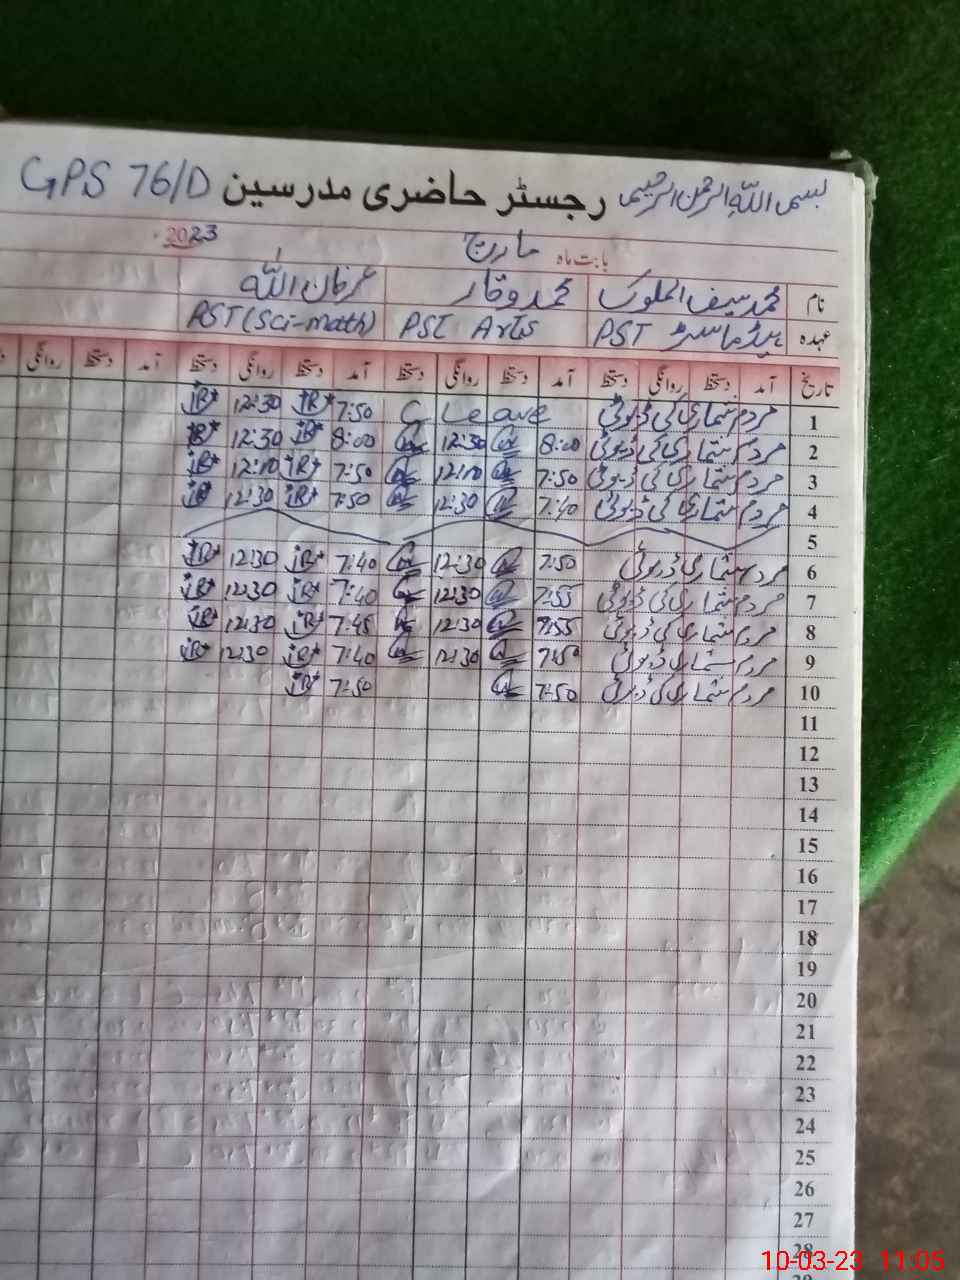 بسم اللہ الرحمن الرحیم رجسٹر حاضری مدرسین GPS 76/D
بابت ماہ مارچ 2023
نام محمد سیف الملوک محمد وقار عرفان اللہ
عہدہ ہیڈ ماسٹر PST PST Arts PST (Sci-math)
تاریخ آمد دستخط روانگی دستخط آمد دستخط روانگی دستخط آمد دستخط روانگی دستخط آمد دستخط روانگی
1 مردم شماری کی ڈیوٹی C Leave 7:50 12:30
2 مردم شماری کی ڈیوٹی 8:00 12:30 8:00 12:30
3 مردم شماری کی ڈیوٹی 7:50 12:10 7:50 12:10
4 مردم شماری کی ڈیوٹی 7:40 12:30 7:50 12:30
5
6 مردم شماری ڈیوٹی 7:50 12:30 7:40 12:30
7 مردم شماری کی ڈیوٹی 7:55 12:30 7:40 12:30
8 مردم شماری کی ڈیوٹی 7:55 12:30 7:45 12:30
9 مردم شماری ڈیوٹی 7:50 12:30 7:40 12:30
10 مردم شماری کی ڈیوٹی 7:50 7:50
11
12
13
14
15
16
17
18
19
20
21
22
23
24
25
26
27
28
10-03-23 11:05